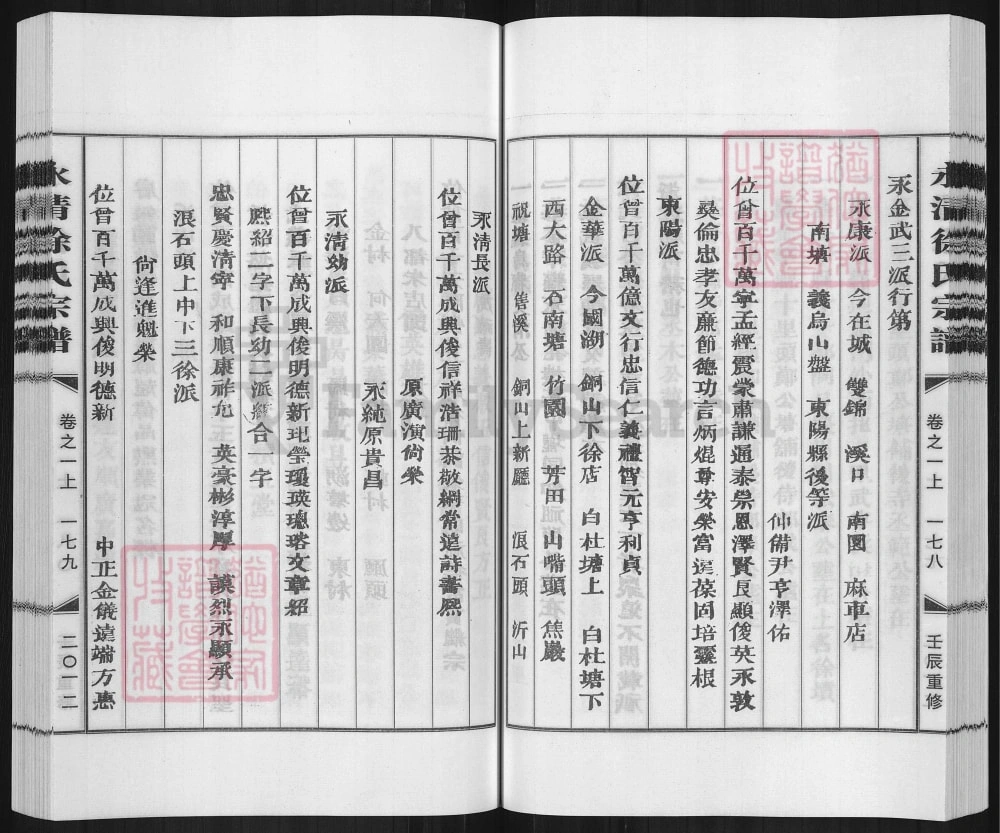 永清徐氏宗譜
卷之一上 一七八
壬辰重修
永金武三派行第
永康派 今在城 雙錦 溪口 南園 麻車店
南塘 義烏山盤 東陽縣後等派
仲備尹亨澤佑
位曾百千萬寧孟經震崇肅謙通泰崇恩澤賢良顯俊英永敦
彝倫忠孝友廉節德功言炳焜尊安榮富選葆固培靈根
東陽派
位曾百千萬億文行忠信仁義禮智元亨利貞
金華派 今國湖 銅山下徐店 白杜塘上 白杜塘下
西大路 石南塘 竹園 芳田山嘴頭 焦巖
祝塘 銅山上新廳 浪石頭 沂山
永清長派
位曾百千萬成興俊信祥浩珊恭敬綱常遠詩書熙
原廣演尚榮
永純原貴昌
永清幼派
位曾百千萬成興俊明德新玘瑩瓊瑛璁瑢文章紹
熙紹二字下長幼二派緫合一字
忠賢慶清寧 和順康祥允 英豪彬淳厚 謨烈永顯承
浪石頭上中下三徐派
尚逢進魁榮
位曾百千萬成興俊明德新 中正金儀遠端方惠
永清徐氏宗譜
卷之一上 一七九
二〇一二